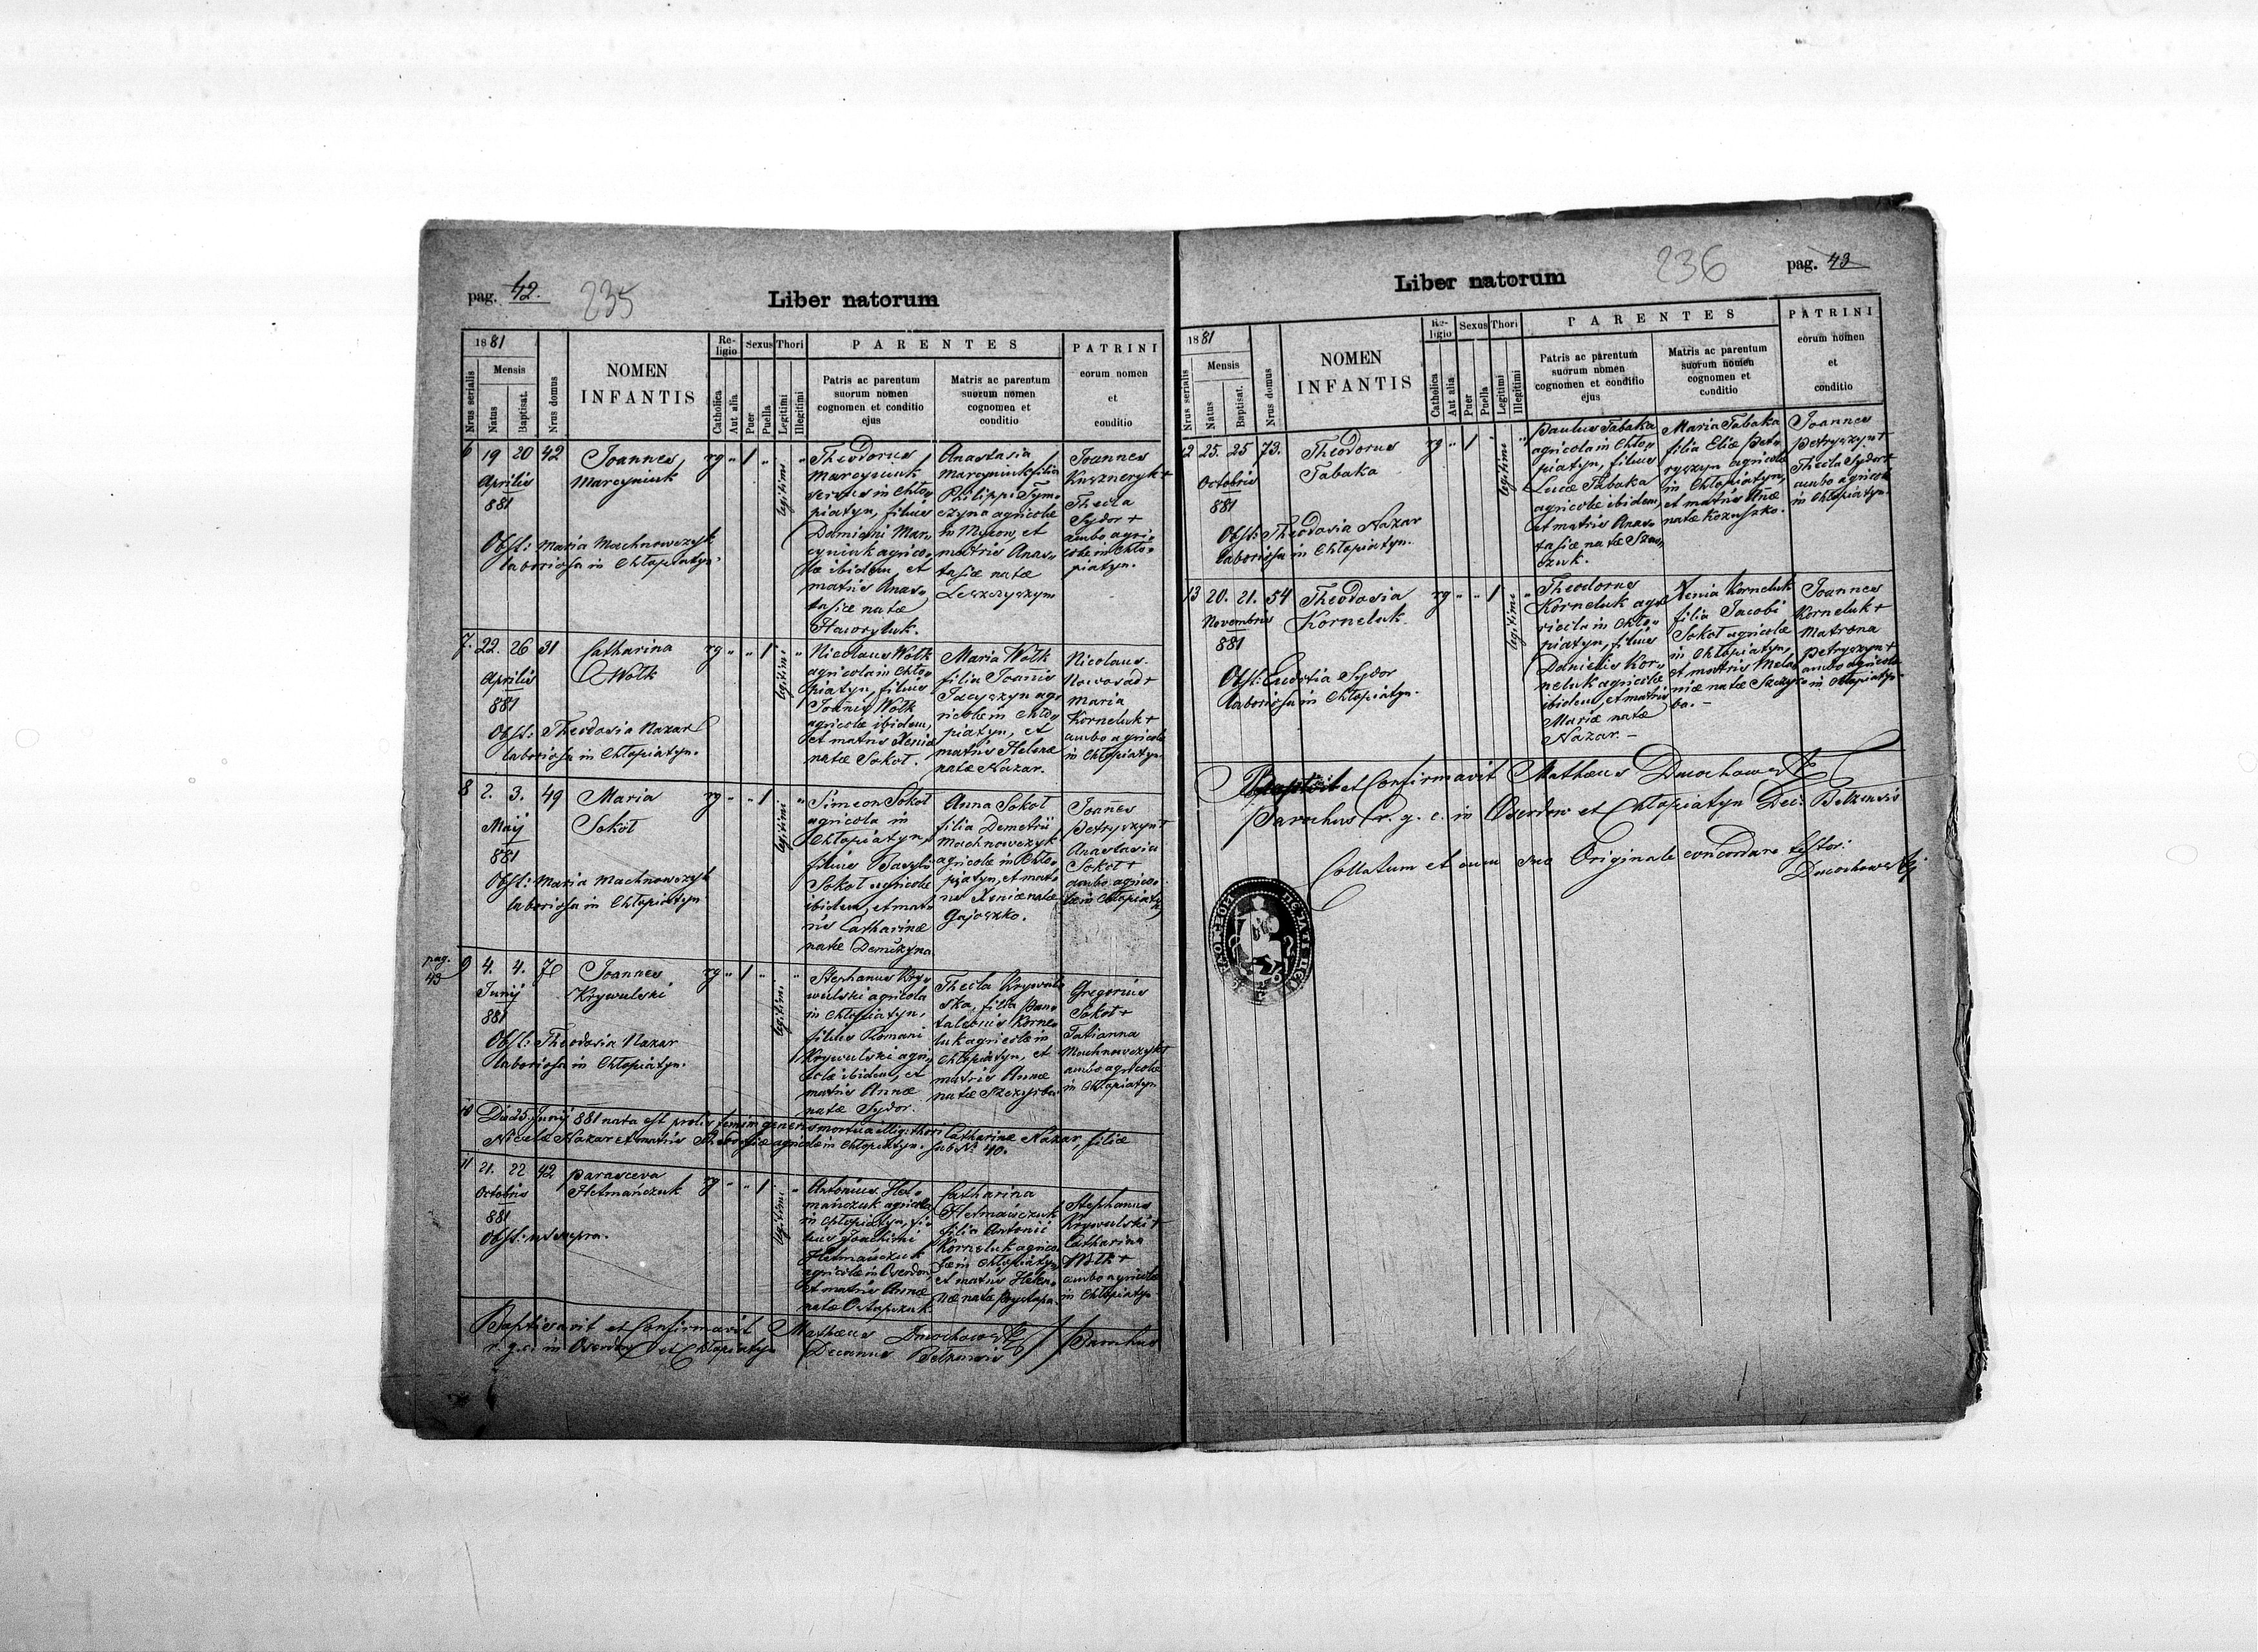 pag. 42.
235
Liber natorum
1881
Mensis
Nrus serialis
Natus
Baptisat.
Nrus domus
NOMEN
INFANTIS
Re-
ligio
Catholica
Aut alia
Sexus
Puer
Puella
Thori
Legitimi
Illegitimi
PARENTES
Patris ac parentum
suorum nomen
cognomen et conditio
ejus
Matris ac parentum
suorum nomen
cognomen et
conditio
PATRINI
eorum nomen
et
conditio
6 19 20 42
Aprilis
881
Joannes
Marcyniuk
rg " 1 "
legitimi
Obst: Maria Machnowczyk
laboriosa in Chłopiatyn.
Theodorus
Marcyniuk
in Chło-
piatyn, filius
Damiani Mar-
cyniuk agrico-
læ ibidem, et
matris Anas-
tasiæ natæ
Hawryluk.
Anastasia
Marcyniuk filia
Philippi Sym-
czyna agricolæ
in Mycow, et
matris Anas-
tasiæ natæ
Leszczyszym
Joannes
Kuszneryk +
Thecla
Sydor +
ambo agri-
colæ in Chło-
piatyn.
7. 22. 26 31
Aprilis
881
Catharina
Wołk
rg " " 1
legitimi
Obst: Theodosia Nazar
laboriosa in Chłopiatyn.
Nicolaus Wołk
agricola in Chło-
piatyn, filius
Joannis Wołk
agricolæ ibidem,
et matris Xeniæ
natæ Sokoł.
Maria Wołk
filia Joannis
Jacyszyn ag-
ricolæ in Chło-
piatyn, et
matris Helenæ
natæ Nazar.
Nicolaus
Nowosad +
Maria
Korneluk +
ambo agricolæ
in Chłopiatyn.
8 2. 3. 49
Maij
881
Maria
Sokół
rg " " 1
legitimi
Obst: Maria Machnowczyk
laboriosa in Chłopiatyn
Simeon Sokoł
agricola in
Chłopiatyn,
filius Basylii
Sokoł agricolæ
ibidem, et mat-
ris Catharinæ
natæ Demczyna.
Anna Sokoł
filia Demetrii
Machnowczyk
agricolæ in Chło-
piatyn, et mat-
ris Xeniæ natæ
Gajoszko.
Joannes
Petryszyn +
Anastasia
Sokoł +
ambo agrico-
læ in Chłopiatyn
pag.
43
9 4. 4. 76
Junij
881
Joannes
Krywulski
rg " 1 "
legitimi
Obst: Theodosia Nazar
laboriosa in Chłopiatyn.
Stephanus Kry-
wulski agricola
in Chłopiatyn,
filius Romani
Krywulski agri-
colæ ibidem, et
matris Annæ
natæ Sydor.
Thecla Krywul-
ska, filia Pan-
taleonis Korne-
luk agricolæ in
Chłopiatyn, et
matris Annæ
natæ Szczyrba.
Gregorius
Sokoł +
Tatianna
Machnowczyk +
ambo agricolæ
in Chłopiatyn
10 Die 25. Junij 881 nata est prolis feminini generis mortua illig: thori Catharinæ Nazar, filiæ
Nicolai Nazar et matris Theodosiæ agricolæ in Chłopiatyn. sub No 40.
11 21. 22 42
Octobris
881
Parasceva
Hetmańczuk
rg " " 1
legitimi
Obst: ut supra.
Antonius Het-
mańczuk agricola
in Chłopiatyn, fi-
lius Joachimi
Hetmańczuk
agricolæ in Oserdow,
et matris Annæ
natæ Ostapczuk.
Catharina
Hetmańczuk
filia Antonii
Korneluk agrico-
læ in Chłopiatyn,
et matris Hele-
næ natæ Prystupa.
Stephanus
Krywulski +
Catharina
Wołk +
ambo agricolæ
in Chłopiatyn
Baptisavit et Confirmavit Mathæus Dmochowski Parochus
r. g. c. in Oserdow et Chłopiatyn Decanus Bełzensis
Liber natorum
236
pag. 43
1881
Mensis
Nrus serialis
Natus
Baptisat.
Nrus domus
NOMEN
INFANTIS
Re-
ligio
Catholica
Aut alia
Sexus
Puer
Puella
Thori
Legitimi
Illegitimi
PARENTES
Patris ac parentum
suorum nomen
cognomen et conditio
ejus
Matris ac parentum
suorum nomen
cognomen et
conditio
PATRINI
eorum nomen
et
conditio
12 25. 25 73.
Octobris
881
Theodorus
Tabaka
rg " 1 "
legitimi
Obst: Theodosia Nazar
laboriosa in Chłopiatyn.
Paulus Tabaka
agricola in Chło-
piatyn, filius
Lucæ Tabaka
agricolæ ibidem,
et matris Anas-
tasiæ natæ Szew-
czuk.
Maria Tabaka
filia Eliæ Pet-
ryszyn agricolæ
in Chłopiatyn,
et matris Annæ
natæ Kozuszko.
Joannes
Petryszyn +
Thecla Sydor +
ambo agricolæ
in Chłopiatyn.
13 20. 21. 54
Novembris
881
Theodosia
Korneluk.
rg " " 1
legitimi
Obst: Eudotia Sydor
laboriosa in Chłopiatyn.
Theodorus
Korneluk ag-
ricola in Chło-
piatyn, filius
Danielis Kor-
neluk agricolæ
ibidem, et matris
Mariæ natæ
Nazar.
Xenia Korneluk
filia Jacobi
Sokoł agricolæ
in Chłopiatyn,
et matris Mela-
niæ natæ Szczyr-
ba.
Joannes
Korneluk +
Matrona
Petryszyn +
ambo agricolæ
in Chłopiatyn.
Baptisavit et Confirmavit Mathæus Dmochowski
Parochus r. g. c. in Oserdow et Chłopiatyn Dec: Bełzensis
Collatum et cum suo Originale concordare testor.
Dmochowski